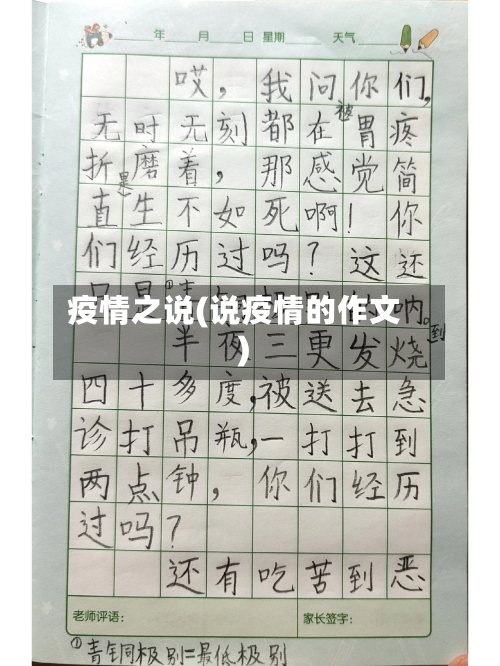 年 月 日 星期 天气
哎，我问你们，
无时无刻都在被胃疼
折磨着，那感觉简
直是生不如死啊！你
们经历过吗？这还
疫情之说(说疫情的作文
)
半夜三更发烧到
四十多度，被送去急
诊打吊瓶，一打打到
两点钟，你们经历
过吗？
还有吃苦到恶
老师评语： 家长签字：
①青铜极别=最低极别